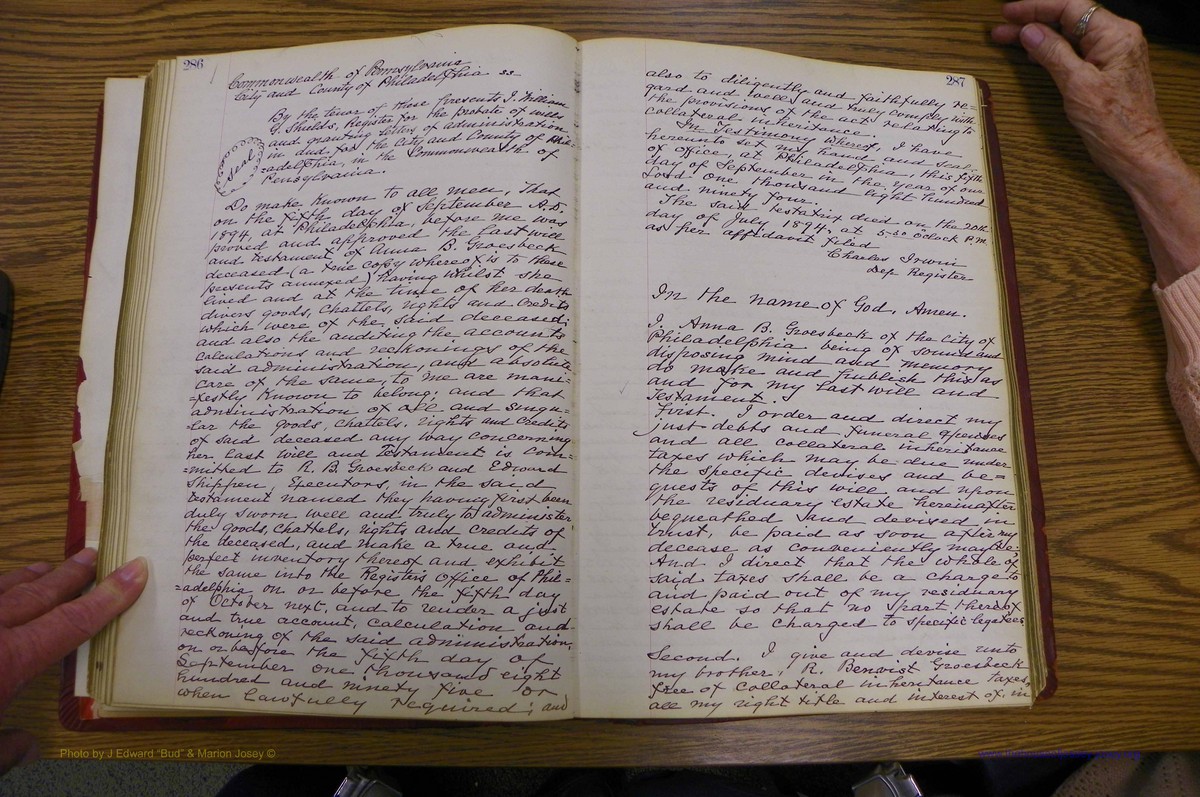 286
Commonwealth of Pennsylvania
City and County of Philadelphia ss
By the tenor of these presents I. William
G. Shields, Register for the probate of wills
and granting letters of administration
in and for the City and County of Phil-
adelphia, in the Commonwealth of
Pensylvania.
Seal
Do make known to all men, That
on the fifth day of September A.D.
1894, at Philadelphia, before me was
proved and approved the last will
and testament of Anna B. Groesbeck
deceased (a true copy whereof is to these
presents annexed) having whilst she
lived and at the time of her death
divers goods, chattels, rights and credits
which were of the, said deceased;
and also the auditing the accounts
calculations and reckonings of the
said administration, and absolute
care of, the same, to me are mani=
=festly known to belong; and that
administration of all and singu=
lar the goods, chattels, rights and credits
of said deceased any way concerning
her last will and Testament is com=
=mitted to R. B. Groesbeck and Edward
Shippen Executors, in the said
testament named they having first been
duly sworn well and truly to administer
the goods, chattels, rights and credits of
the deceased, and make a true and
perfect inventory thereof and exhibit
the same into the Registers Office of Phil=
=adelphia on or before the fifth day
of October next, and to render a just
and true account, calculation and
reckoning of the said administration,
on or before the fifth day of
September one thousand eight
hundred and ninety five or
when lawfully required; and
287
also to diligently and faithfully re=
gard and well and truly comply with
the provisions of the act relating to
collateral inheritance.
In Testimony Whereof, I have
hereunto set my hand and seal
of office, at Philadelphia, this fifth
day of September in the year of our
Lord one thousand eight hundred
and ninety four.
The said testatrix died on the 20th
day of July 1894, at 5-30 oclock P.M.
as per affidavit filed
Charles Irwin
Dep Register
In the name of God, Amen.
I. Anna B. Groesbeck of the city of
Philadelphia being of sound and
disposing mind and memory
do make and publish this as
and for my last will and
Testament.
First. I order and direct my
just debts and funeral expenses
and all collateral inheritance
taxes which may be due under
the specific devises and be=
quests of this will and upon
the residuary estate hereinafter
bequeathed and devised in
trust, be paid as soon after my
decease as conveniently may be.
And I direct that the whole of
said taxes shall be a charge to
and paid out of my residuary
estate so that no part thereof
shall be charged to specific legatees.
Second. I give and devise unto
my brother, R. Benoist Groesbeck
free of collateral inheritance taxes,
all my right title and interest of, in
Photo by J Edward "Bud" & Marion Josey ©